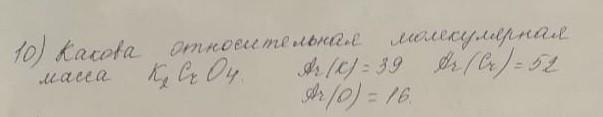 10) Какова относительная молекулярная
масса K₂CrO₄. Ar(K)=39 Ar(Cr)=52
Ar(O)=16.